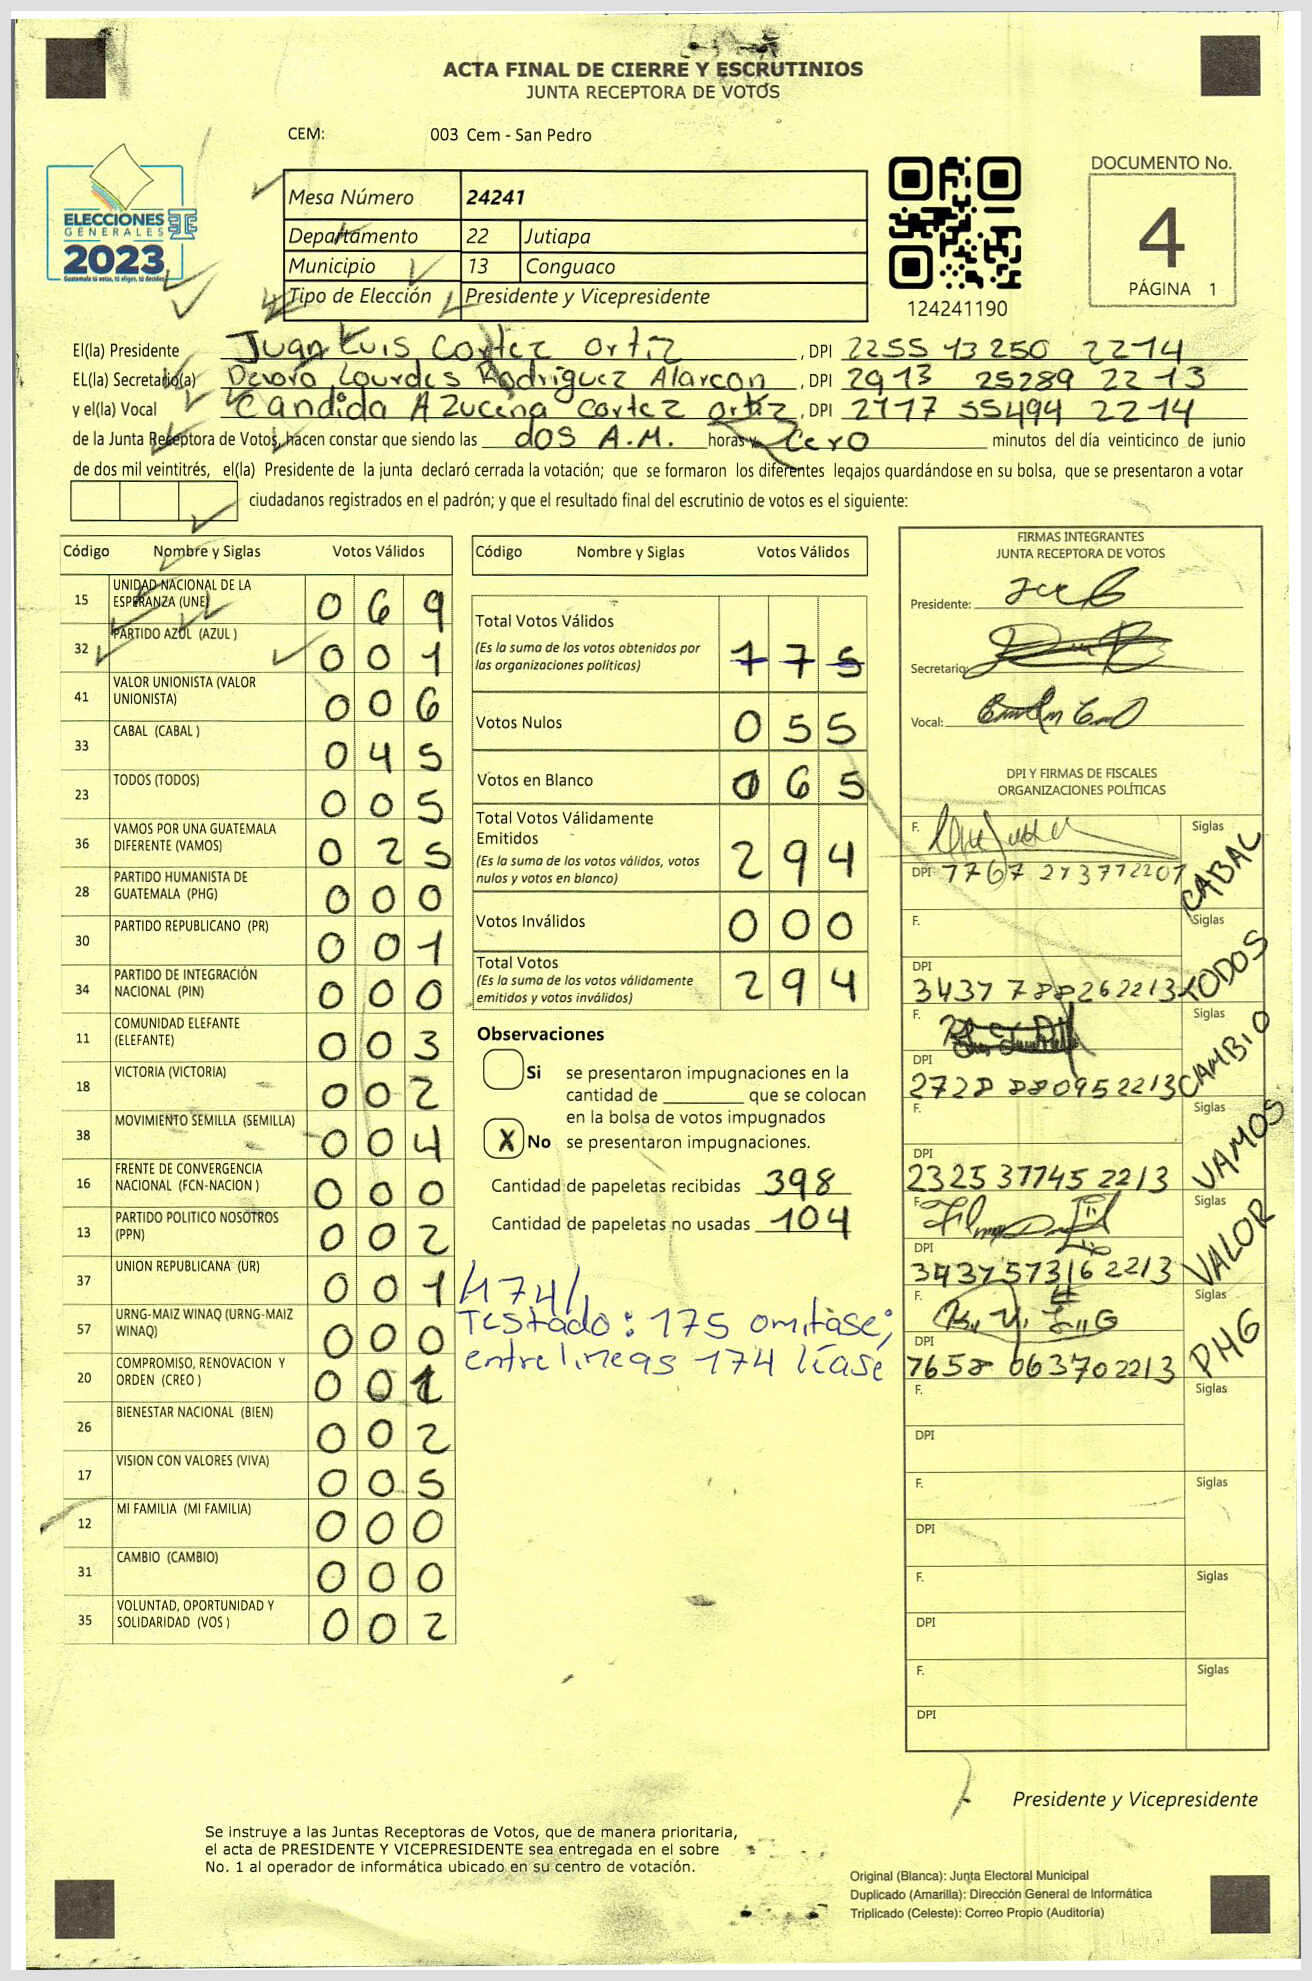 ACTA FINAL DE CIERRE Y ESCRUTINIOS
JUNTA RECEPTORA DE VOTOS
CEM: 003 Cem - San Pedro
ELECCIONES
GENERALES
2023
Guatemala tú votas, tú eliges, tú decides
Mesa Número 24241
Departamento 22 Jutiapa
Municipio 13 Conguaco
Tipo de Elección Presidente y Vicepresidente
124241190
DOCUMENTO No.
4
PÁGINA 1
El(la) Presidente Juan Luis Cortez Ortiz, DPI 2255 13250 2214
EL(la) Secretario(a) Devora Lourdes Rodriguez Alarcon, DPI 2913 25289 2213
y el(la) Vocal Candida Azucena Cortez Ortiz, DPI 2717 55494 2214
de la Junta Receptora de Votos, hacen constar que siendo las dos A.M. horas y Cero minutos del día veinticinco de junio
de dos mil veintitrés, el(la) Presidente de la junta declaró cerrada la votación; que se formaron los diferentes legajos quardándose en su bolsa, que se presentaron a votar
ciudadanos registrados en el padrón; y que el resultado final del escrutinio de votos es el siguiente:
Código Nombre y Siglas Votos Válidos
15 UNIDAD NACIONAL DE LA ESPERANZA (UNE) 069
32 PARTIDO AZUL (AZUL ) 001
41 VALOR UNIONISTA (VALOR UNIONISTA) 006
33 CABAL (CABAL ) 045
23 TODOS (TODOS) 005
36 VAMOS POR UNA GUATEMALA DIFERENTE (VAMOS) 025
28 PARTIDO HUMANISTA DE GUATEMALA (PHG) 000
30 PARTIDO REPUBLICANO (PR) 001
34 PARTIDO DE INTEGRACIÓN NACIONAL (PIN) 000
11 COMUNIDAD ELEFANTE (ELEFANTE) 003
18 VICTORIA (VICTORIA) 002
38 MOVIMIENTO SEMILLA (SEMILLA) 004
16 FRENTE DE CONVERGENCIA NACIONAL (FCN-NACION ) 000
13 PARTIDO POLITICO NOSOTROS (PPN) 002
37 UNION REPUBLICANA (UR) 001
57 URNG-MAIZ WINAQ (URNG-MAIZ WINAQ) 000
20 COMPROMISO, RENOVACION Y ORDEN (CREO ) 001
26 BIENESTAR NACIONAL (BIEN) 002
17 VISION CON VALORES (VIVA) 005
12 MI FAMILIA (MI FAMILIA) 000
31 CAMBIO (CAMBIO) 000
35 VOLUNTAD, OPORTUNIDAD Y SOLIDARIDAD (VOS ) 002
Código Nombre y Siglas Votos Válidos
Total Votos Válidos
(Es la suma de los votos obtenidos por las organizaciones políticas) 175
Votos Nulos 055
Votos en Blanco 065
Total Votos Válidamente Emitidos
(Es la suma de los votos válidos, votos nulos y votos en blanco) 294
Votos Inválidos 000
Total Votos
(Es la suma de los votos válidamente emitidos y votos inválidos) 294
Observaciones
Si se presentaron impugnaciones en la
cantidad de ________ que se colocan
en la bolsa de votos impugnados
X No se presentaron impugnaciones.
Cantidad de papeletas recibidas 398
Cantidad de papeletas no usadas 104
/174/
Testado: 175 omitase;
entre lineas 174 líase
FIRMAS INTEGRANTES
JUNTA RECEPTORA DE VOTOS
Presidente:
Secretario:
Vocal:
DPI Y FIRMAS DE FISCALES
ORGANIZACIONES POLÍTICAS
F. Siglas CABAL
DPI
F. Siglas TODOS
DPI 3437 788262213
F. Siglas CAMBIO
DPI 2728 880952213
F. Siglas VAMOS
DPI 2325 37745 2213
F. Siglas VALOR
DPI 3437573162213
F. Siglas PHG
DPI 7658 063702213
F. Siglas
DPI
F. Siglas
DPI
F. Siglas
DPI
F. Siglas
DPI
Presidente y Vicepresidente
Se instruye a las Juntas Receptoras de Votos, que de manera prioritaria,
el acta de PRESIDENTE Y VICEPRESIDENTE sea entregada en el sobre
No. 1 al operador de informática ubicado en su centro de votación.
Original (Blanca): Junta Electoral Municipal
Duplicado (Amarilla): Dirección General de Informática
Triplicado (Celeste): Correo Propio (Auditoría)